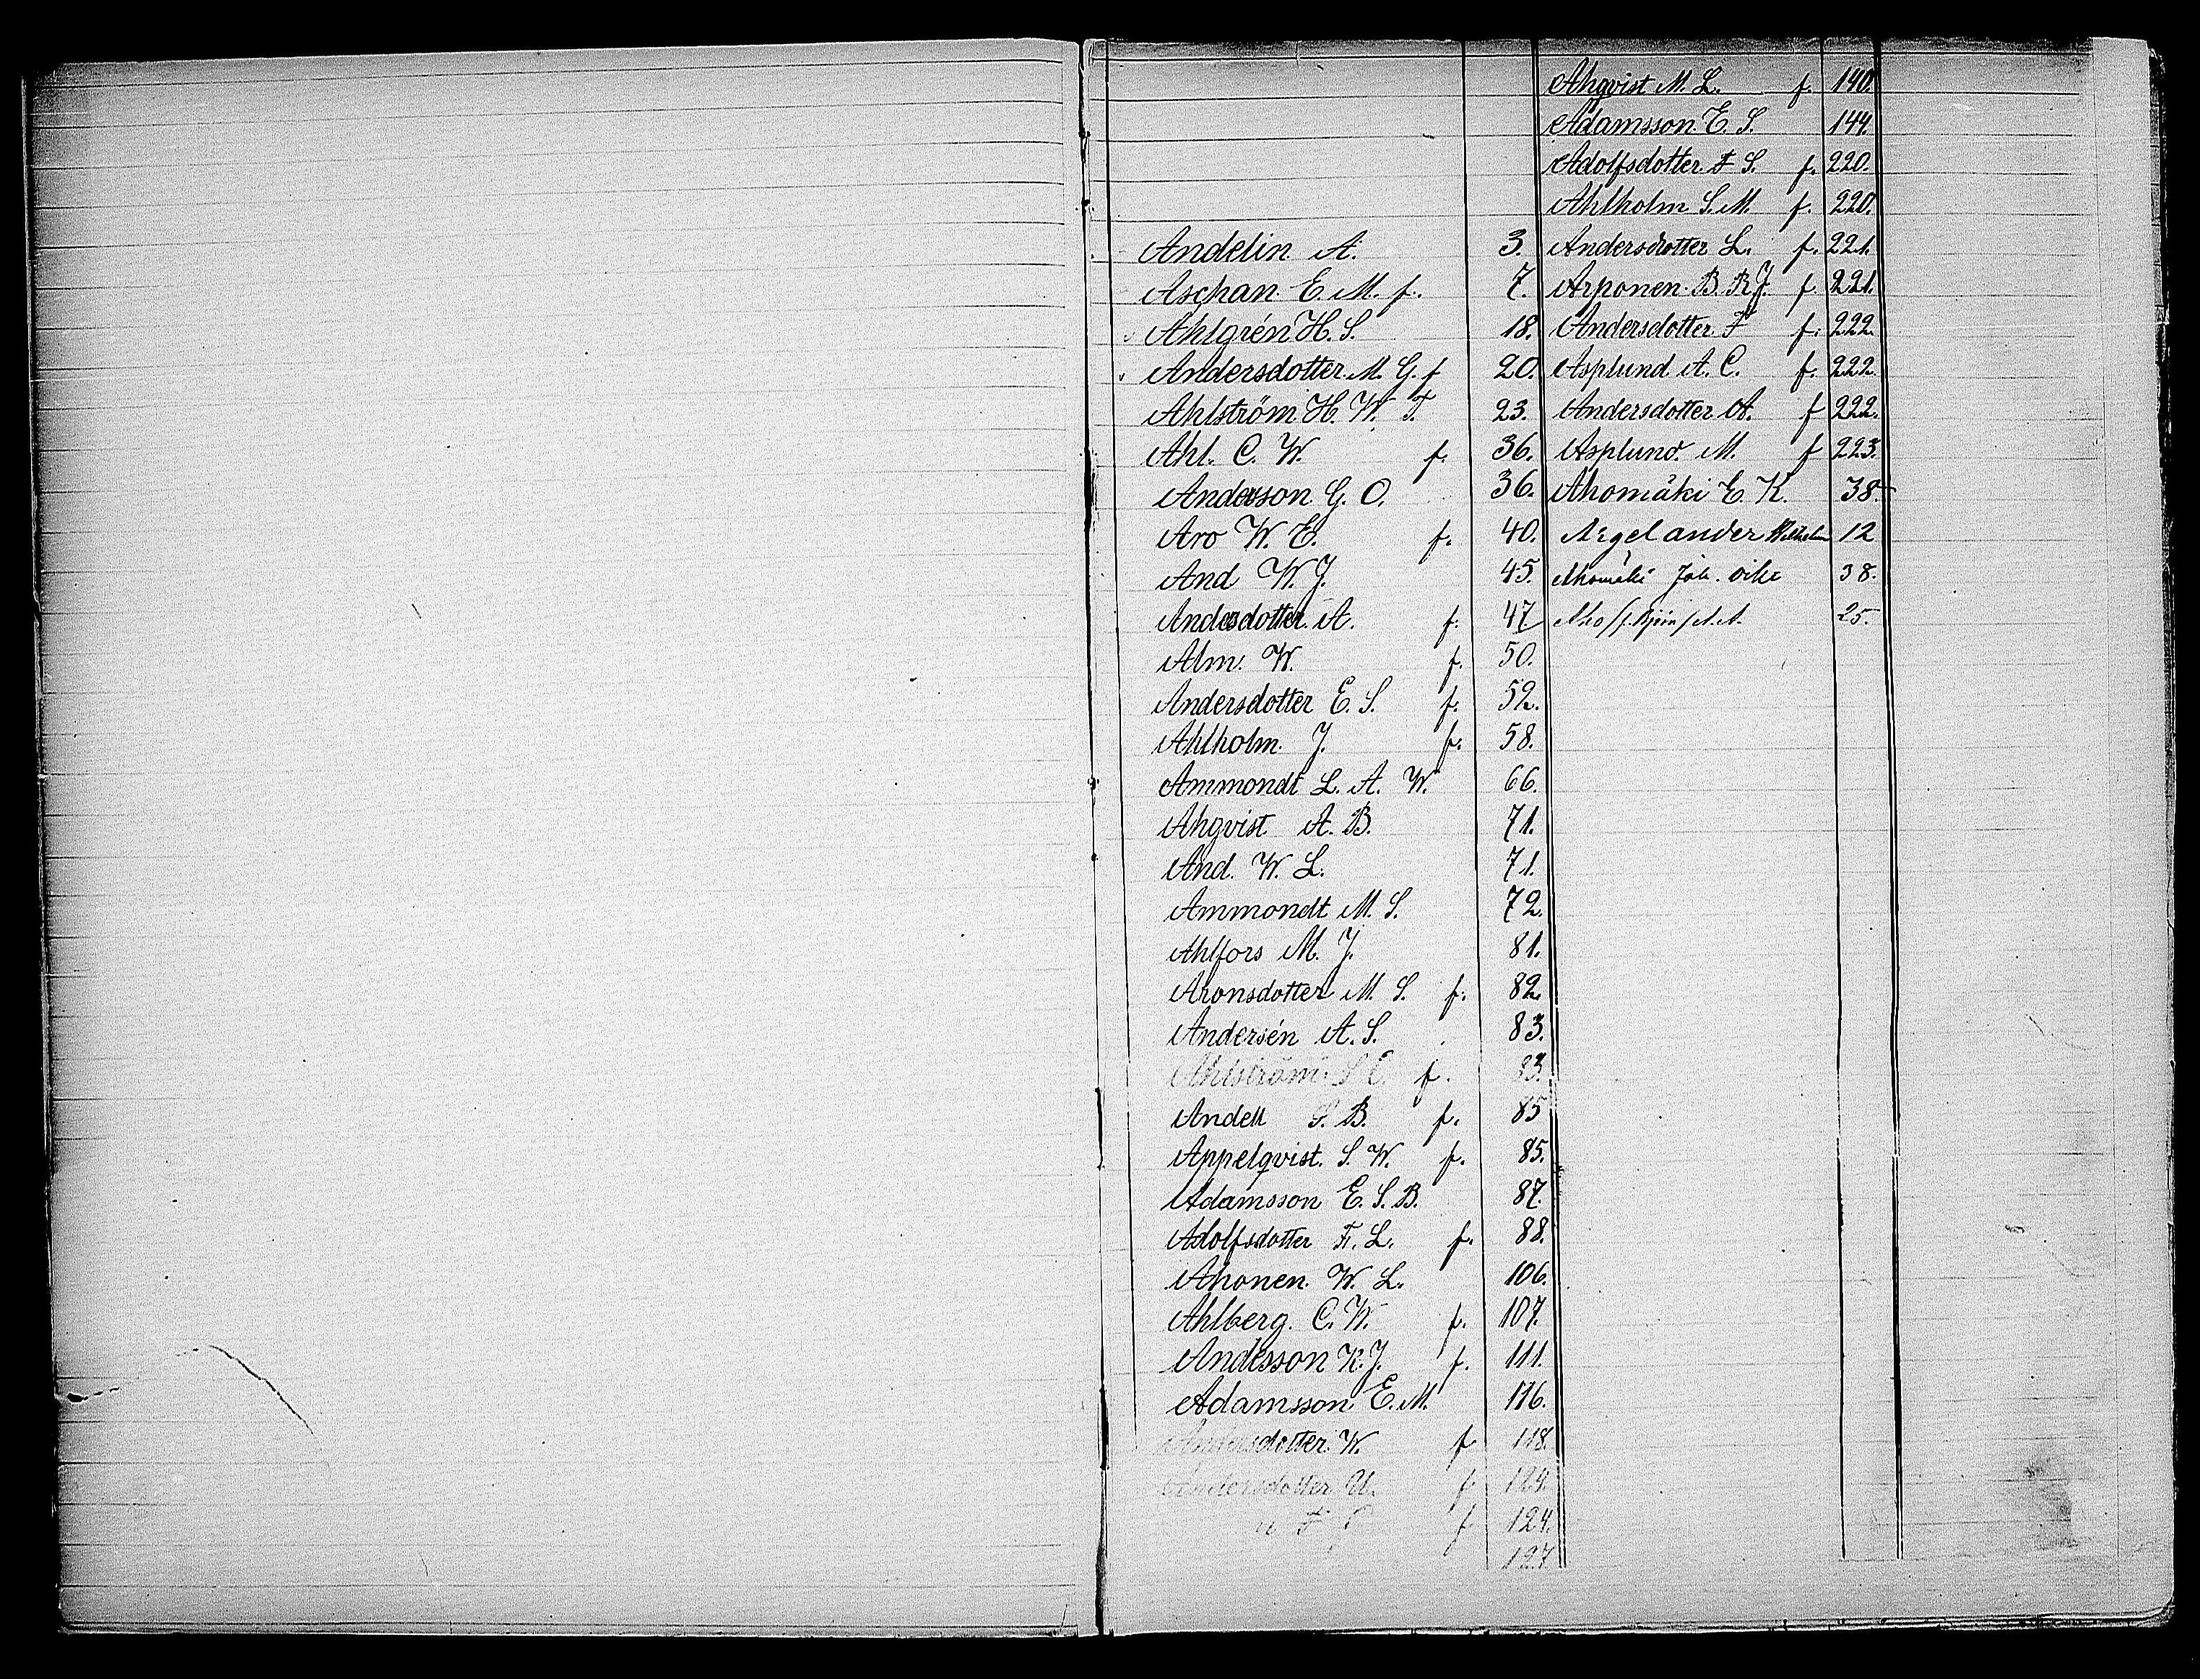 Andelin A. 3.
Aschan E. M. f. 7.
Ahlgrén H. S. 18.
Andersdotter M. G. f 20.
Ahlström H. W. T. 23.
Ahl. C. W. f. 36.
Anderson G. O. 36.
Aro W. E. f. 40.
And W. J. 45.
Andersdotter A. f. 47
Alm. W. f. 50.
Andersdotter E. S. f. 52.
Ahlholm. J. f. 58.
Ammondt L. A. W. 66.
Ahqvist A. B. 71.
And. W. L. 71.
Ammondt M. S. 72.
Ahlfors M. J. 81.
Aronsdotter M. S. f. 82.
Andersén A. S. 83.
Ahlström S. E. f. 83.
Andell S. B. f. 85
Appelqvist. S. W. f. 85.
Adamsson E. S. B. 87.
Adolfsdotter F. L. f. 88.
Ahonen. W. L. 106.
Ahlberg. C. W. f. 107.
Andersson K. J. f. 111.
Adamsson E. M. 116.
Andersdotter W. f. 118.
Andersdotter U. f. 124.
" F f 124.
127
Ahqvist M. L. f. 140.
Adamsson E. S. 144.
Adolfsdotter F S. f. 220.
Ahlholm S. M. f. 220.
Andersdotter L. f. 221.
Arponen B. R. J. f. 221.
Andersdotter F f. 222.
Asplund A. C. f. 222.
Andersdotter A. f 222.
Asplund M. f 223.
Ahomäki E. K. 38.
Argelander Wilhelm 12
Ahomäki Joh. 38.
Aho A. A. 25.